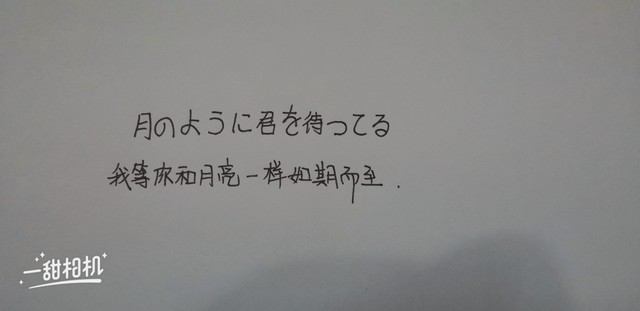 月のように君を待つてる
我等你和月亮一样如期而至.
一甜相机